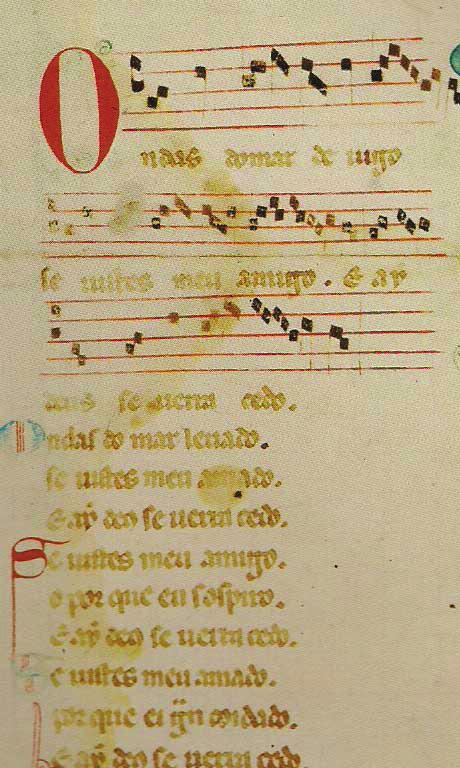 Ondas do mar de uigo
se uistes meu amigo. E ay
deus se uerra cedo.
Ondas do mar leuado.
se uistes meu amado.
E aẏ deo se uerra cedo.
Se uistes meu amigo.
o por que eu sospiro.
E aẏ deo se uerra cedo.
Se uistes meu amado.
por que ei g̃n coidado.
E aẏ deo se uerra cedo.